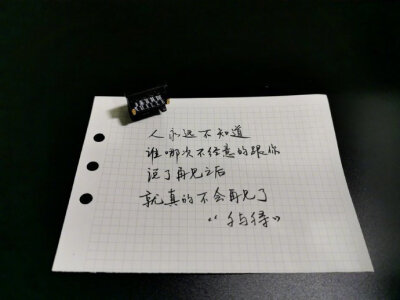 人永远不知道
谁哪次不经意的跟你
说了再见之后
就真的不会再见了